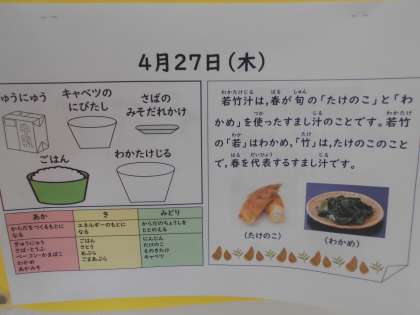 4月27日(木)
ゅうにゅう
キャベツの
にびたし
さばの
みそだれかけ
ごはん
わかたけじる
あか
き
みどり
からだをつくるもとに
なる
エネルギーのもとに
なる
からだのちょうしを
ととのえる
ぎゅうにゅう
さば・とうふ
ベーコン・かまぼこ
わかめ
あかみそ
ごはん
さとう
あぶら
ごまあぶら
にんじん
たけのこ
えのきたけ
キャベツ
わかたけじる はる しゅん
若竹汁は,春が旬の「たけのこ」と「わ
つか じる
かめ」を使ったすまし汁のことです。若竹
の「若」はわかめ,「竹」は,たけのこのこと
はる だいひょう じる
で,春を代表するすまし汁です。
(たけのこ)
(わかめ)